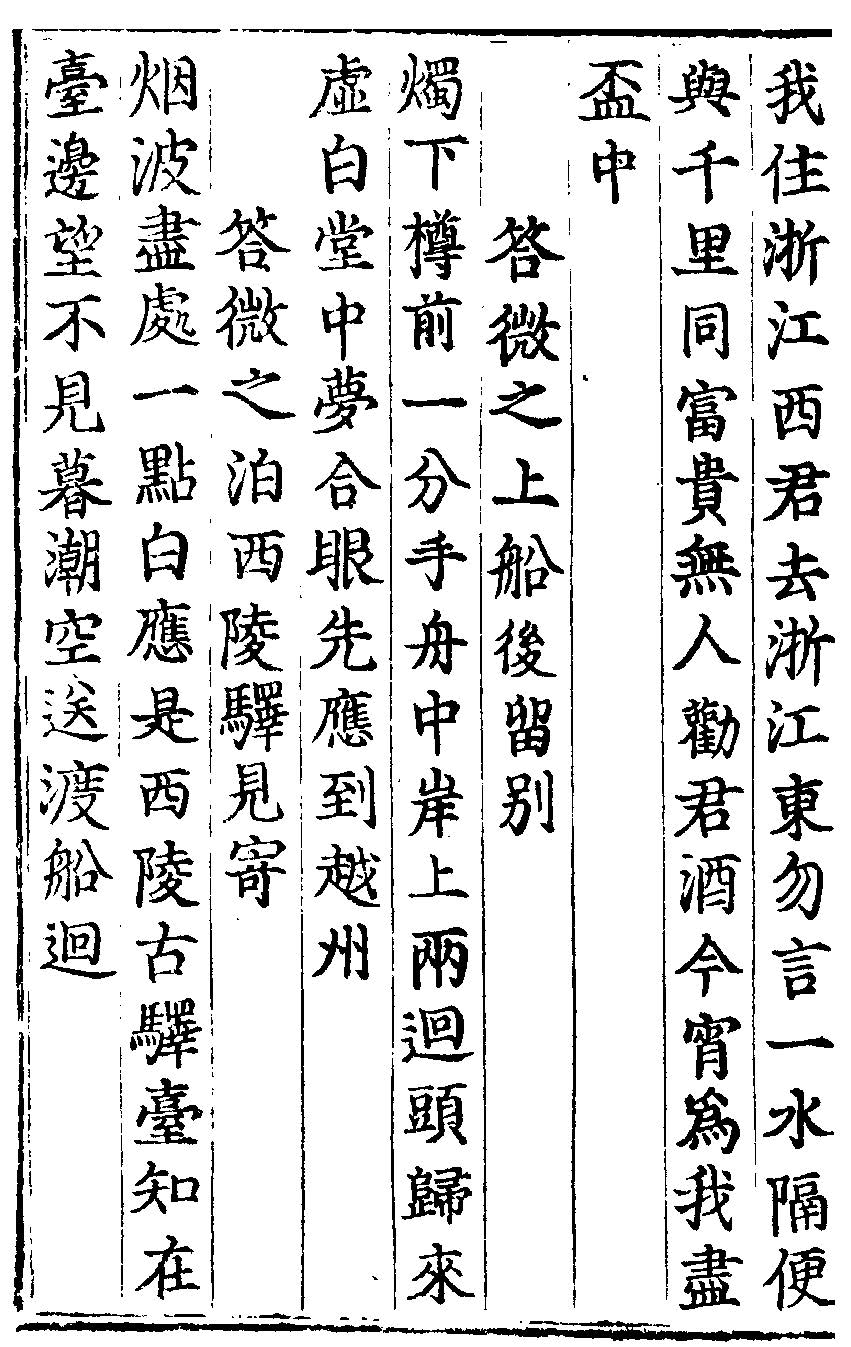 我住浙江西君去浙江東勿言一水隔便
與千里同富貴無人勸君酒今宵爲我盡
盃中
答微之上船後留别
燭下樽前一分手舟中岸上兩迴頭歸來
虛白堂中夢合眼先應到越州
答微之泊西陵驛見寄
烟波盡處一點白應是西陵古驛臺知在
臺邊望不見暮潮空送渡船迴